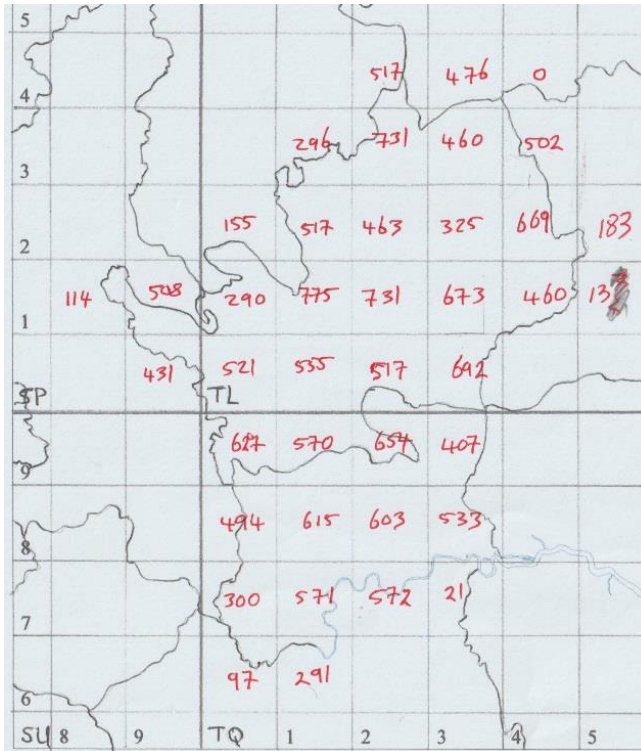 5
517 476 0
4
296 731 460 502
3
155 517 463 325 669 183
2
114 508 290 775 731 673 460 13
1
431 521 535 517 692
SP TL
627 570 654 407
9
494 615 603 533
8
300 571 572 21
7
97 291
6
SU 8 9 TQ 1 2 3 4 5